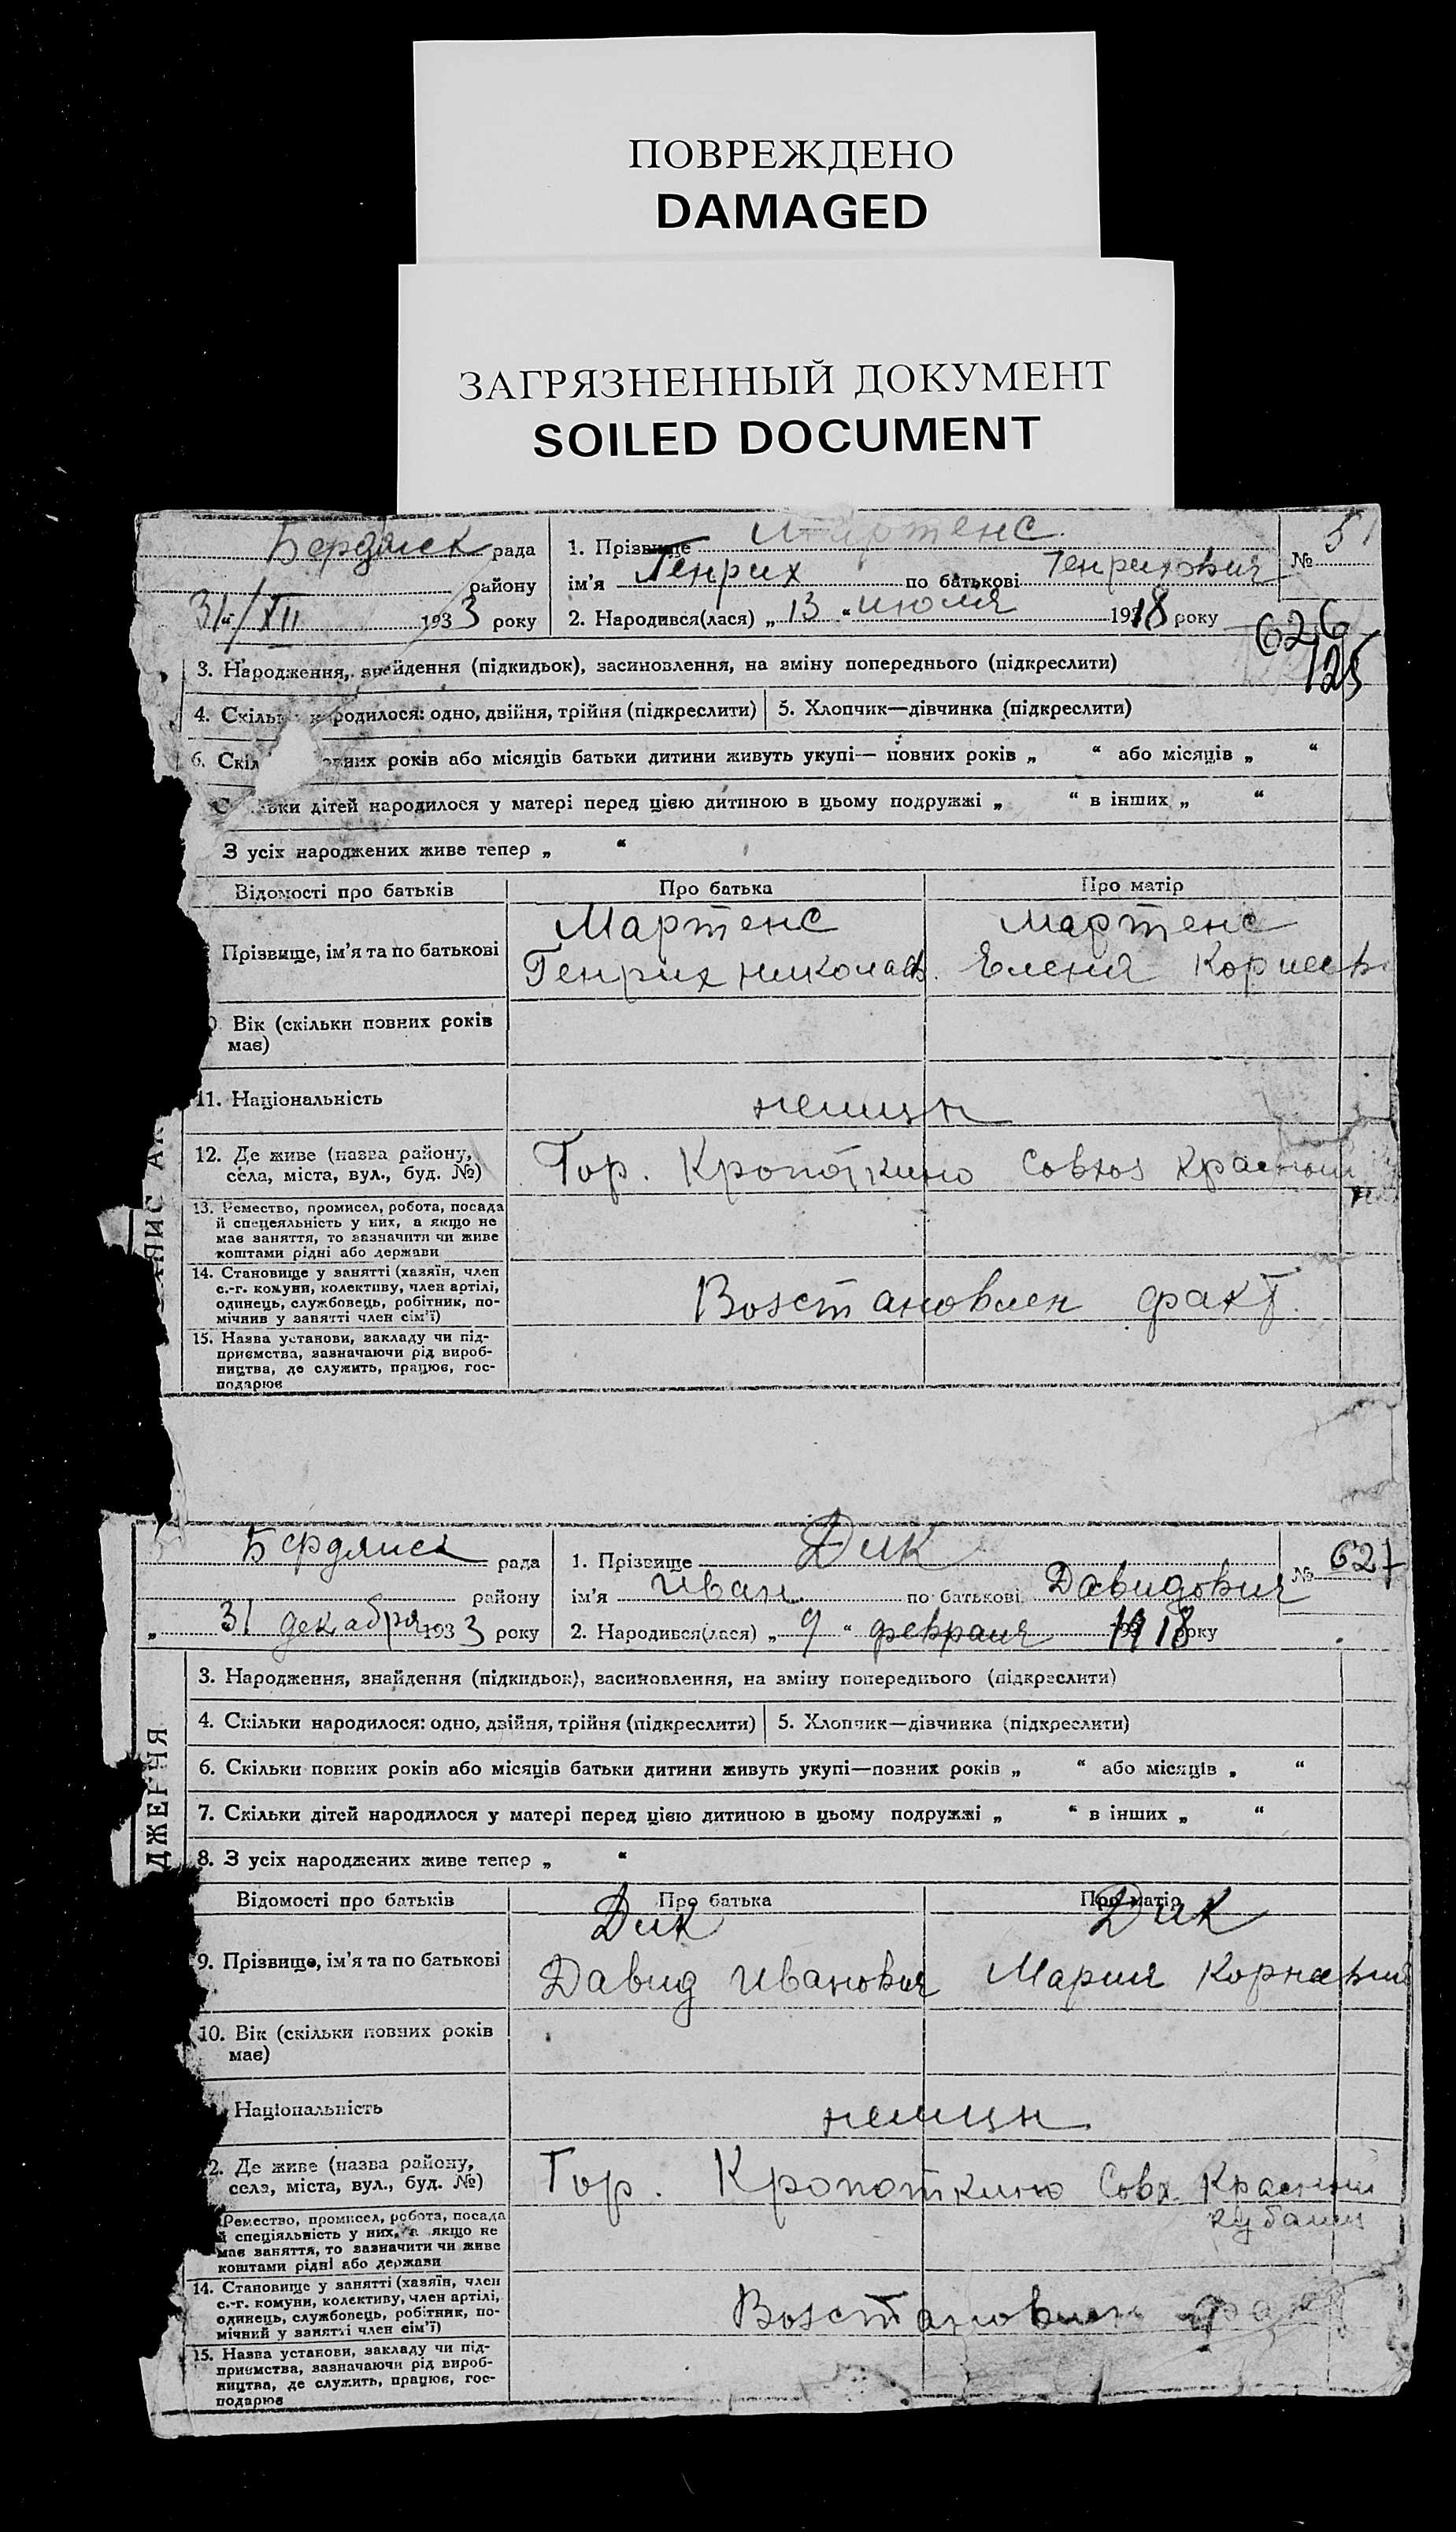 ПОВРЕЖДЕНО
DAMAGED
ЗАГРЯЗНЕННЫЙ ДОКУМЕНТ
SOILED DOCUMENT
Бердянск рада
району
31/XII 1933 року
1. Прізвище Мартенс
ім'я Генрих по батькові Генрихович
2. Народився(лася) „ 13 “ июля 1918 року
№ 51
626
125
3. Народження, знайдення (підкидьок), засиновлення, на зміну попереднього (підкреслити)
4. Скільки народилося: одно, двійня, трійня (підкреслити) 5. Хлопчик—дівчинка (підкреслити)
6. Скіл повних років або місяців батьки дитини живуть укупі— повних років „ “ або місяців „ “
Скільки дітей народилося у матері перед цією дитиною в цьому подружжі „ “ в інших „ “
З усіх народжених живе тепер „ “
Відомості про батьків Про батька Про матір
Прізвище, ім'я та по батькові
Мартенс
Генрих Николаев.
Мартенс
Елена Корнеев
Вік (скільки повних років
має)
11. Національність немцы
12. Де живе (назва району,
села, міста, вул., буд. №)
Гор. Кропоткино Совхоз Красный
13. Ремество, промисел, робота, посада
й спецеяльність у них, а якщо не
має заняття, то зазначити чи живе
коштами рідні або держави
14. Становище у занятті (хазяїн, член
с.-г. комуни, колективу, член артілі,
одинець, службовець, робітник, по-
мічнив у занятті член сім'ї)
Возстановлен факт.
15. Назва установи, закладу чи під-
приємства, зазначаючи рід вироб-
ництва, де служить, працює, гос-
подарює
Бердянск рада
району
„ 31 декабря 1933 року
1. Прізвище Дик
ім'я Иван по батькові Давидович
2. Народився(лася) „ 9 “ февраля 1918 року
№ 627
3. Народження, знайдення (підкидьок), засиновлення, на зміну попереднього (підкреслити)
4. Скільки народилося: одно, двійня, трійня (підкреслити) 5. Хлопчик—дівчинка (підкреслити)
6. Скільки повних років або місяців батьки дитини живуть укупі—повних років „ “ або місяців „ “
7. Скільки дітей народилося у матері перед цією дитиною в цьому подружжі „ “ в інших „ “
8. З усіх народжених живе тепер „ “
ДЖЕННЯ
Відомості про батьків Про батька Про матір
9. Прізвище, ім'я та по батькові
Дик
Давид Иванович
Дик
Мария Корнеевна
10. Вік (скільки повних років
має)
Національність немцы
12. Де живе (назва району,
села, міста, вул., буд. №)
Гор. Кропоткино Совх. Красный
кубанец
Ремество, промисел, робота, посада
й спеціяльність у них, а якщо не
має заняття, то зазначити чи живе
коштами рідні або держави
14. Становище у занятті (хазяїн, член
с.-г. комуни, колективу, член артілі,
одинець, службовець, робітник, по-
мічний у занятті член сім'ї)
Возстановлен факт
15. Назва установи, закладу чи під-
приємства, зазначаючи рід вироб-
ництва, де служить, працює, гос-
подарює